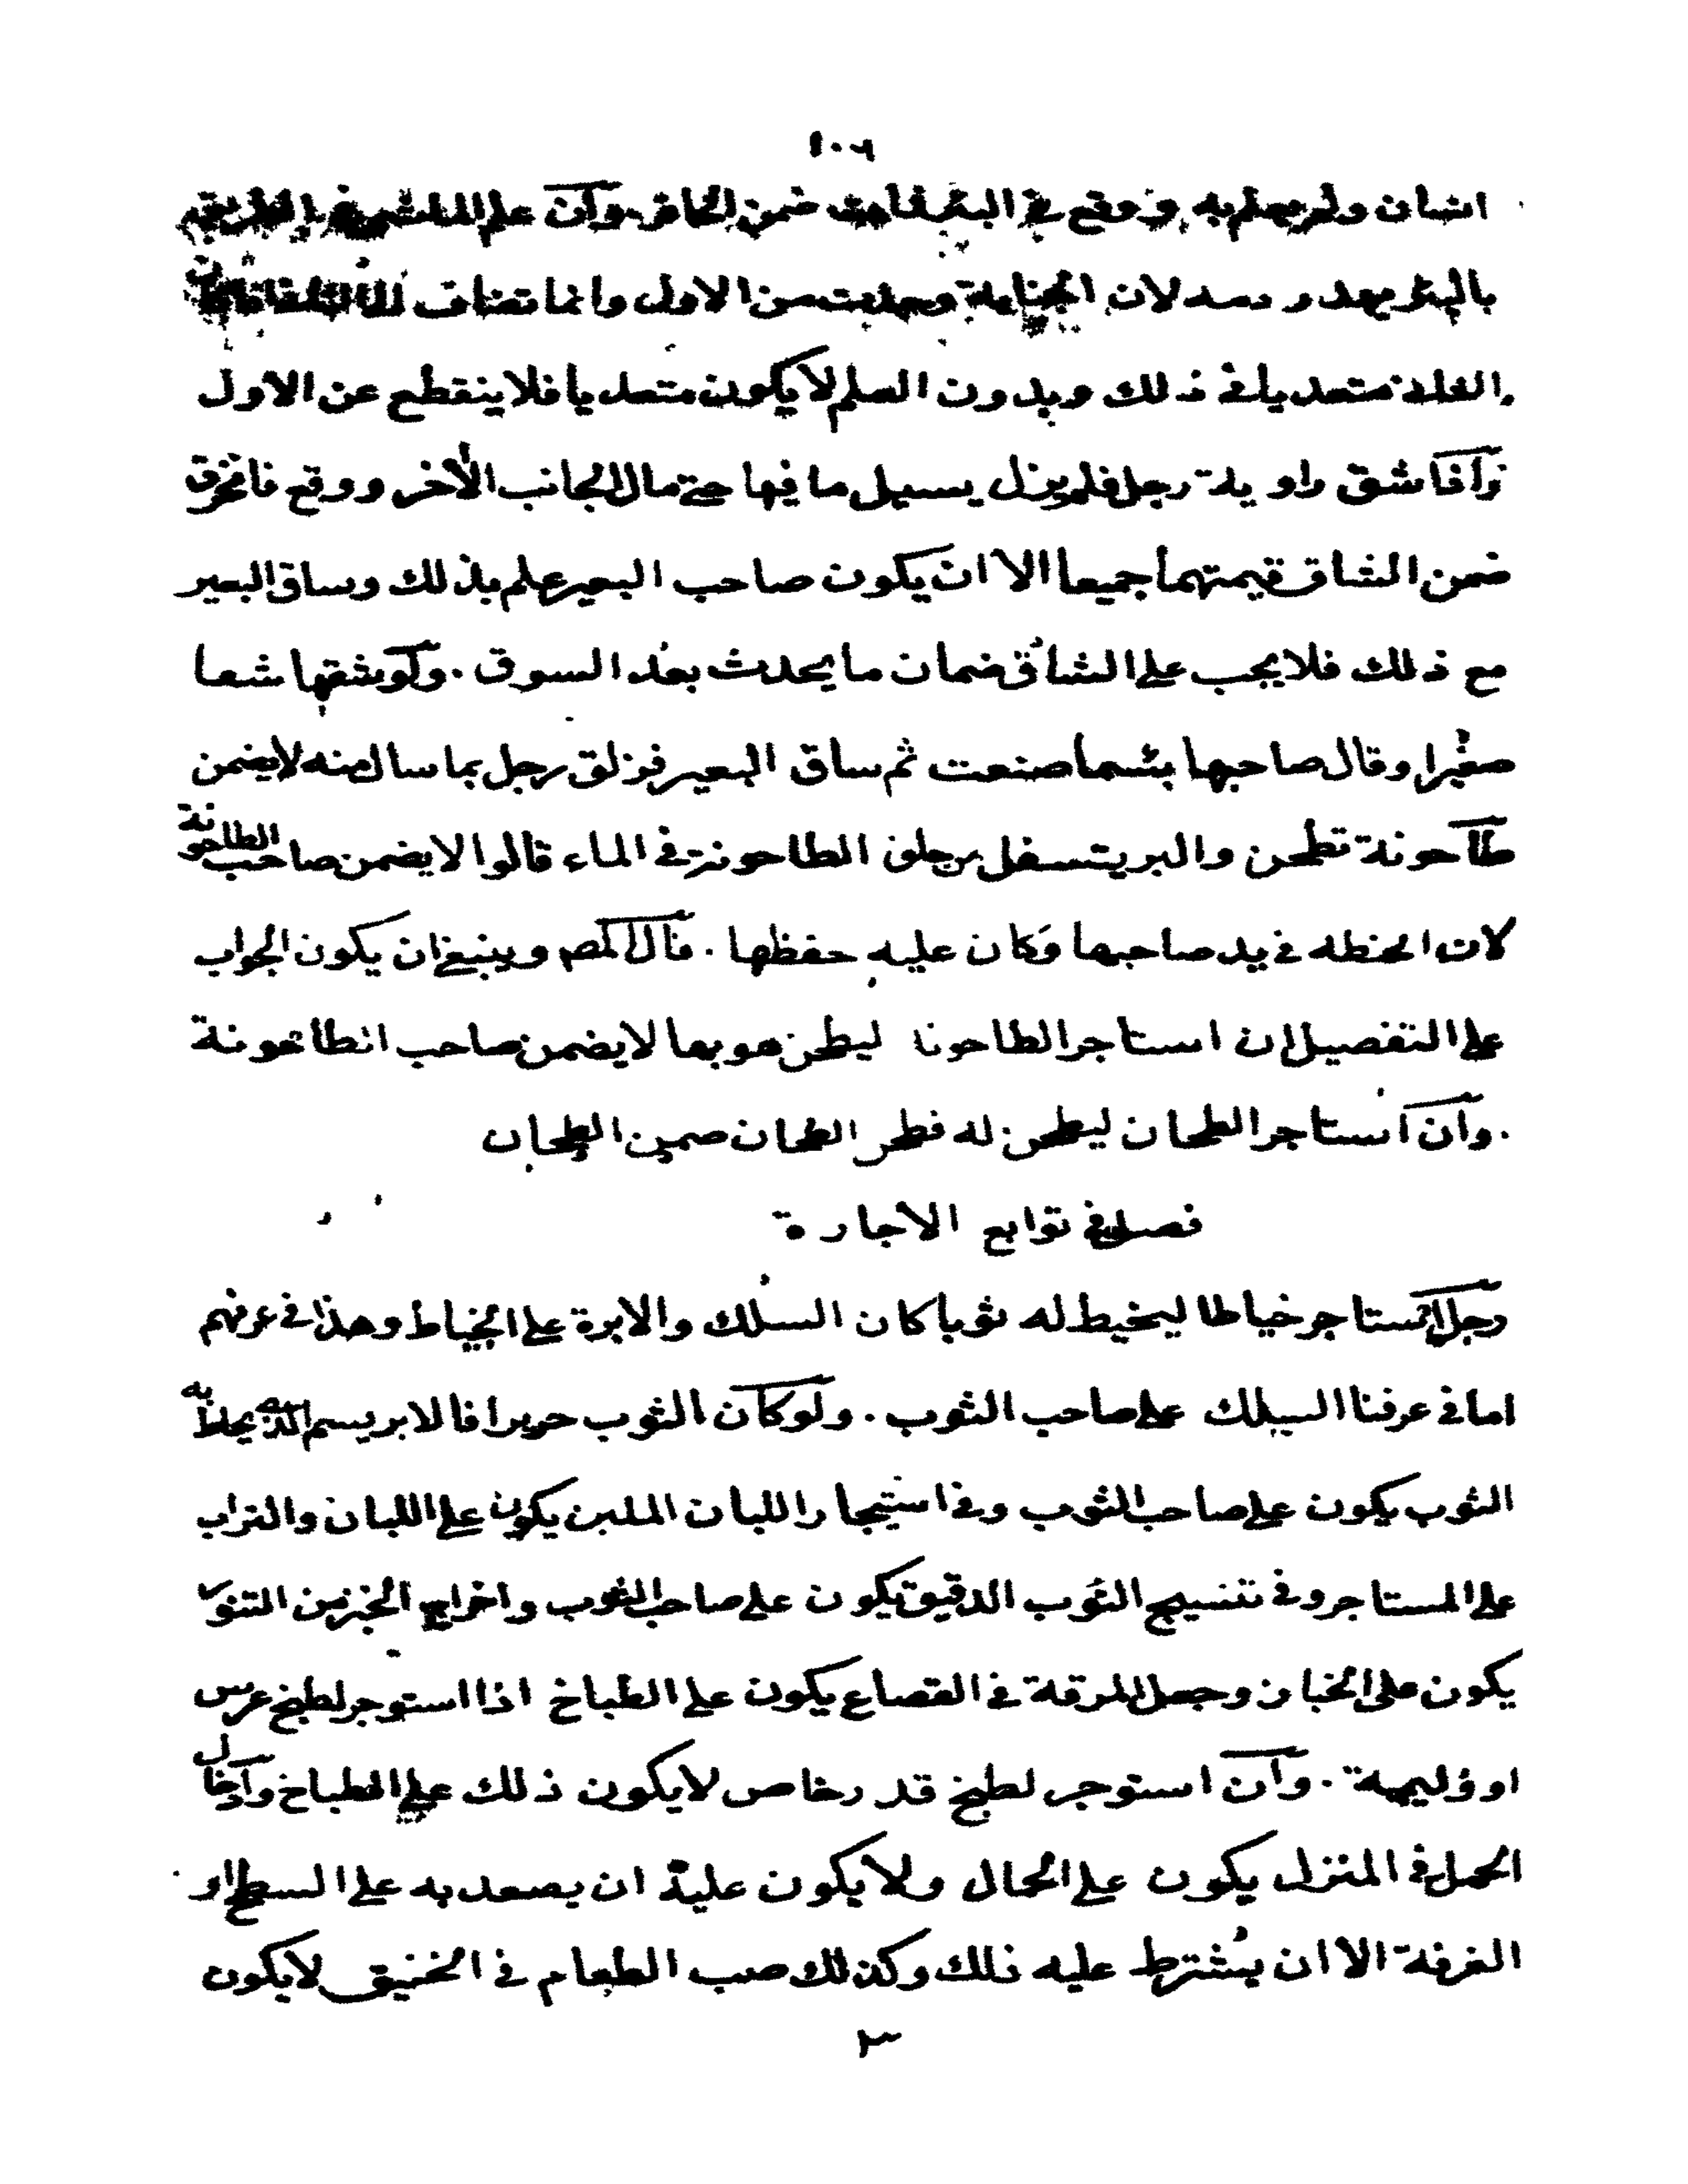 ١٠٦
انسان ولم يعلم به ووقع في البئر فمات ضمن الحافر وان علم الماشي في الطريق
بالبئر يهدر دمه لان الجناية وجدت من الاول وانما تضاف الى الثاني اذا كان
الثاني متعديا في ذلك وبدون العلم لا يكون متعديا فلا ينقطع عن الاول
شق راوية رجل فلم يزل يسيل ما فيها حتى مال الجانب الآخر ووقع فانخرق
ضمن الشاق قيمتهما جميعا الا ان يكون صاحب البعير علم بذلك وساق البعير
مع ذلك فلا يجب على الشاق ضمان ما يحدث بعد السوق . ولو شقها شقا
صغيرا وقال صاحبها بئسما صنعت ثم ساق البعير فزلق رجل بما سال منه لا يضمن
طاحونة تطحن والبر يتسفل من الطاحونة في الماء قالوا لا يضمن صاحب الطاحونة
لان الحنطه في يد صاحبها وكان عليه حفظها . قال المص وينبغي ان يكون الجواب
على التفصيل ان استاجر الطاحونا ليطحن هو بها لا يضمن صاحب الطاحونة
. وان استاجر الطحان ليطحن له فطحن الطحان ضمن الطحان
فصل في توابع الاجارة
رجل استاجر خياطا ليخيط له ثوبا كان السلك والابرة على الخياط وهذا في عرفهم
اما في عرفنا السلك على صاحب الثوب . ولو كان الثوب حريرا فالابريسم الذي يخاط به
الثوب يكون على صاحب الثوب وفي استيجار اللبان الملبن يكون على اللبان والتراب
على المستاجر وفي تنسيج الثوب الدقيق يكون على صاحب الثوب واخراج الخبز من التنور
يكون على الخباز وجعل المرقة في القصاع يكون على الطباخ اذا استوجر لطبخ عرس
او وليمة . وان استوجر لطبخ قدر خاص لا يكون ذلك على الطباخ وادخال
الحمل في المنزل يكون على الحمال ولا يكون عليه ان يصعد به على السطح او
الغرفة الا ان يشترط عليه ذلك وكذلك صب الطعام في الخنيق لا يكون